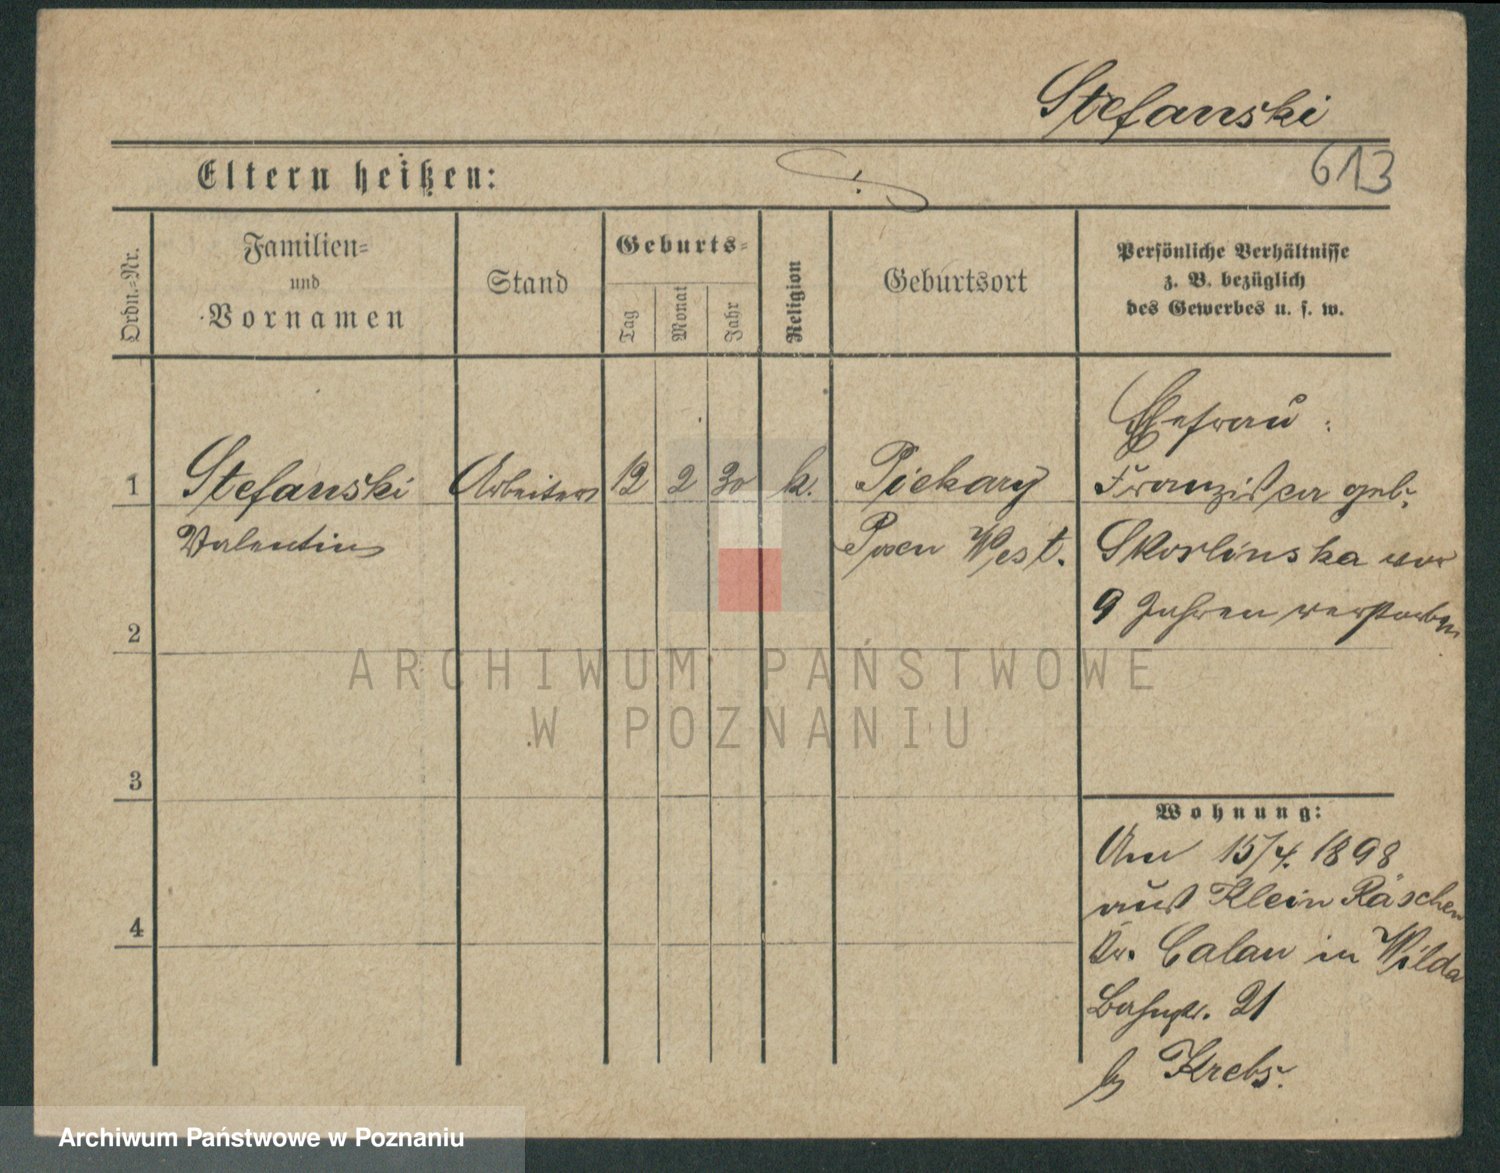 Stefanski
613
Eltern heißen:
Ordn.-Nr.
Familien-
und
Vornamen
Stand
Geburts-
Tag
Monat
Jahr
Religion
Geburtsort
Persönliche Verhältnisse
z. B. bezüglich
des Gewerbes u. s. w.
Ehefrau :
1 Stefanski Arbeiter 12 2 30 k. Piekary Franziska geb.
Valentin Posen West. Skorlinska vor
9 Jahren verstorben
2
ARCHIWUM PAŃSTWOWE
W POZNANIU
3
Wohnung:
Am 15/4. 1898
aus Klein Räschen
4
Kr. Calau in Wilda
Bahnstr. 21
b/ Krebs.
Archiwum Państwowe w Poznaniu